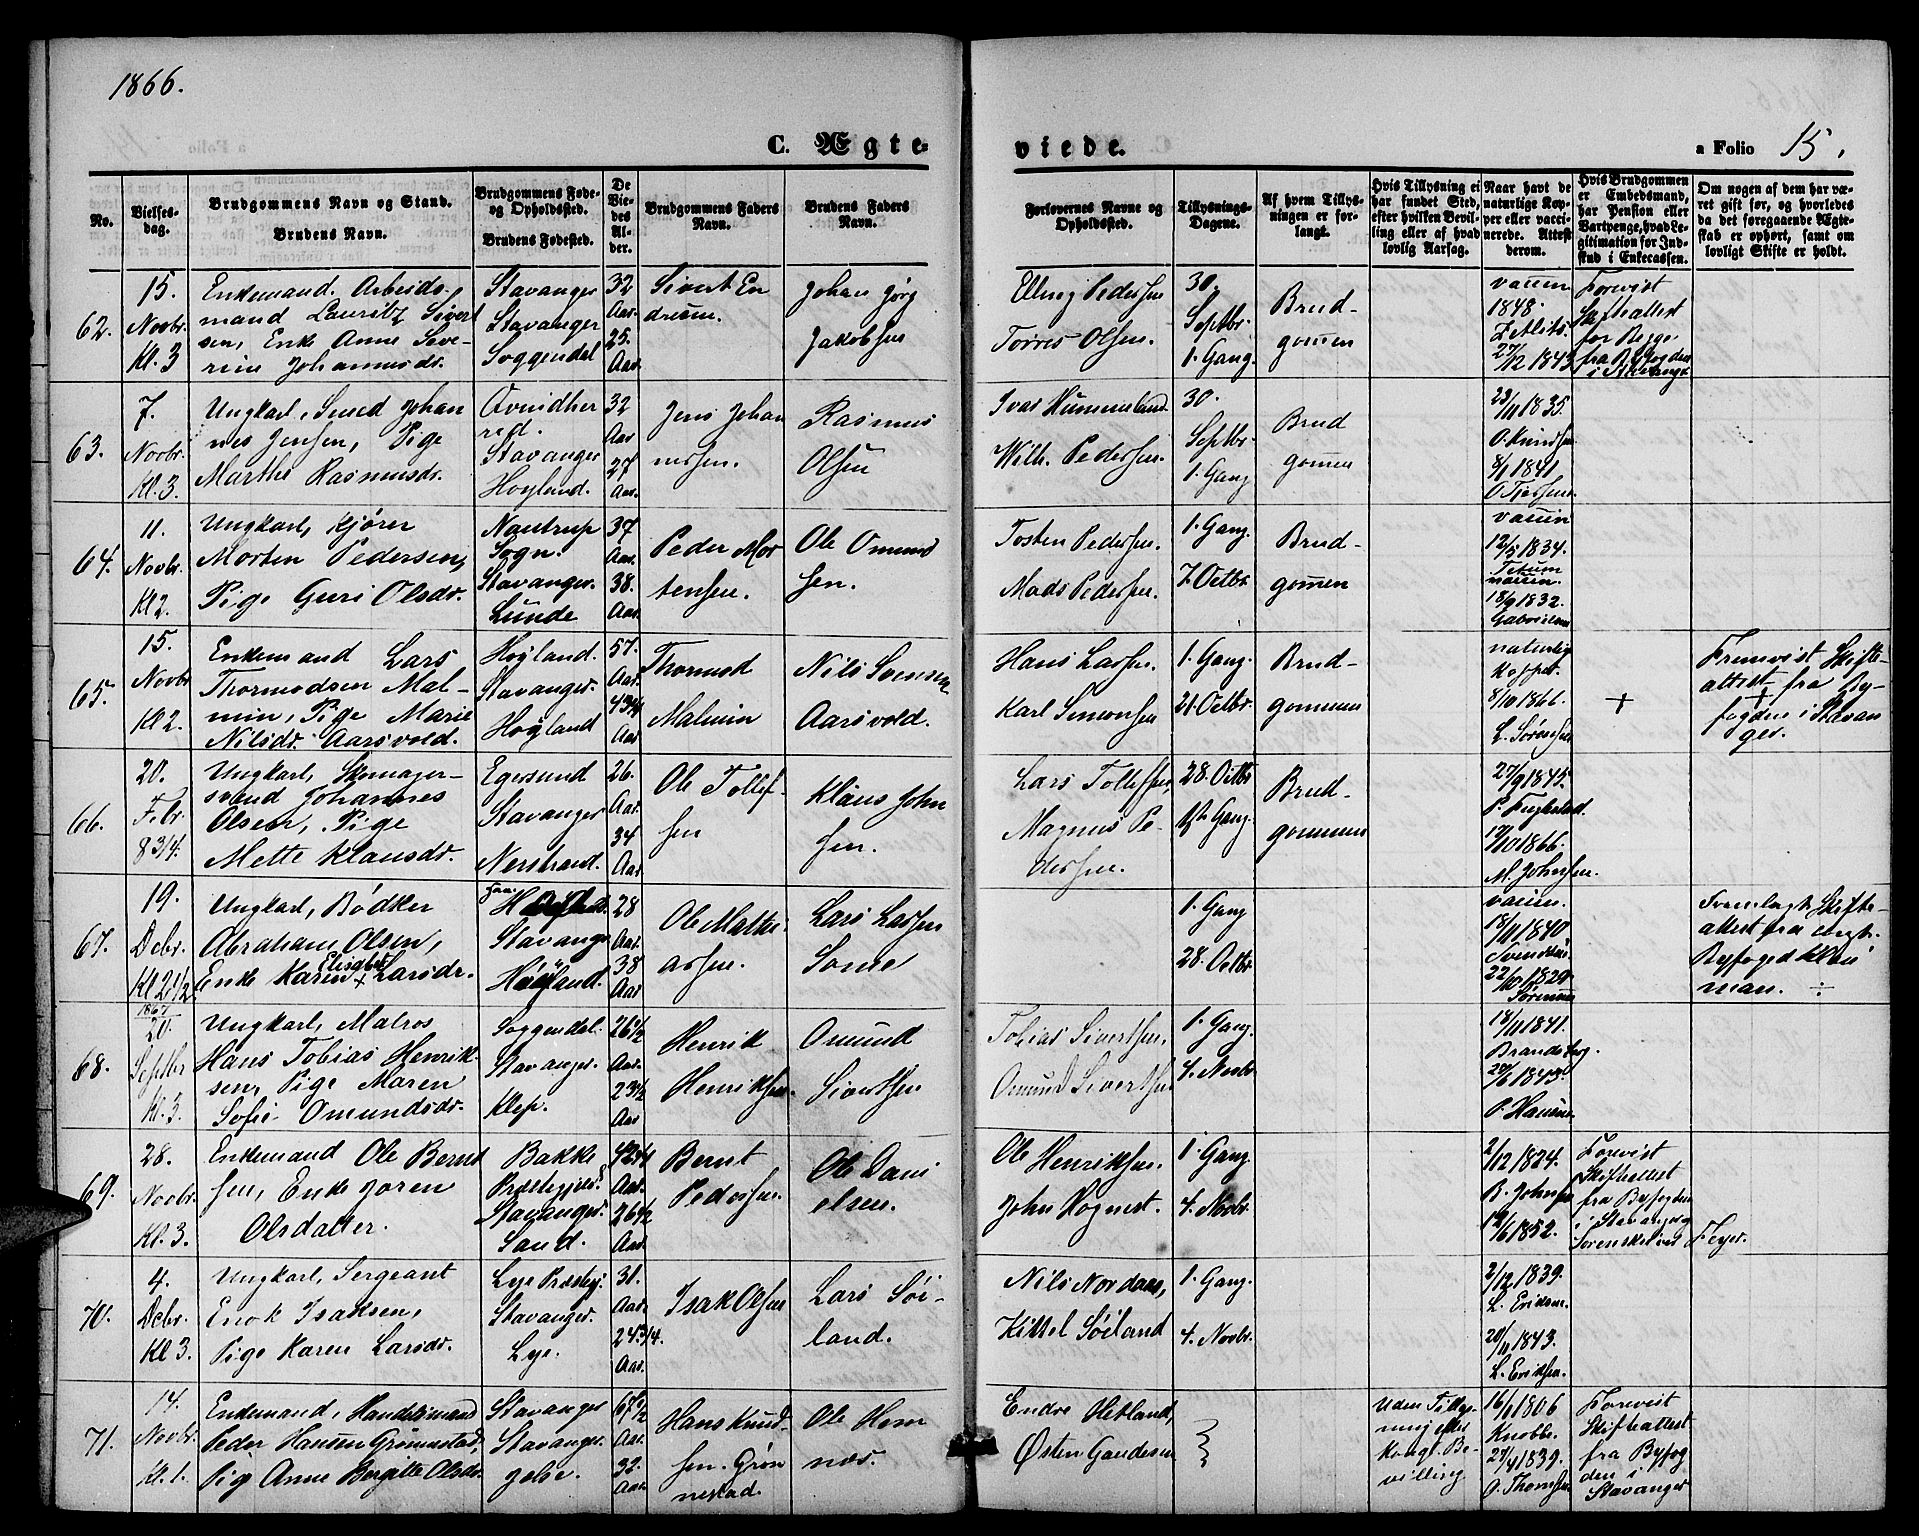 1866.
C. Ægte-
viede.
a Folio 15.
No.
Vielses-
dag.
Brudgommens Navn og Stand.
Brudens Navn.
Brudgommens Føde-
og Opholdssted.
Brudens Fødested.
De
Vie-
des
Al-
der.
Brudgommens Faders
Navn.
Brudens Faders
Navn.
Forlovernes Navne og
Opholdssted.
Tillysnings-
Dagene.
Af hvem Tillys-
ningen er for-
langt.
Hvis Tillysning ei
har fundet Sted,
efter hvilken Bevil-
ling eller af hvad
lovlig Aarsag.
Naar havt de
naturlige Kop-
per eller vacci-
nerede. Attest
derom.
Hvis Brudgommen
er Embedsmand,
har Pension eller
Vartpenge, hvad Le-
gitimation for Ind-
skud i Enkecassen.
Om nogen af dem har væ-
ret gift før, og hvorledes
da det foregaaende Ægte-
skab er ophørt, samt om
lovligt Skifte er holdt.
62.
15.
Novbr.
Kl. 3
Enkemand. Arbeids-
mand Lauritz Sivert
sen, Enke Anne Seve-
rine Johannesdr.
Stavanger
Stavanger
Soggendal
32
Aar.
25.
Aar.
Sivert En
dresen.
Johan Jørg
Jakobsen
Elling Pedersen
Torres Olsen.
30.
Septbr.
1. Gang.
Brud-
gomen
vacin
1848.
Zetlits.
27/12 1843
Forevist
Skifteattest
for Begge
fra Byfogden
i Stavanger
63.
7.
Novbr.
Kl. 3.
Ungkarl, Smed Johan
nes Jensen, Pige
Marthe Rasmusdr.
red.
Stavanger
Hoyland.
32
Aar
27
Aar.
Jens Johan
nessen.
Rasmus
Olsen
Ivar Hummeland
Wilh. Pedersen.
30.
Septbr.
1. Gang
Brud
gomen
23/11 1835.
O. Knudsen
8/1 1841.
64.
11.
Novbr.
Kl 2.
Ungkarl, Kjører
Morten Pedersen,
Pige Guri Olsdr.
Nautrup
Sogn.
Stavanger.
Lunde
37
Aar.
38.
Aar.
Peder Mor
tensen.
Ole Omund
sen.
Tosten Pedersen.
Mads Pedersen.
1. Gang.
7. Octbr.
Brud-
gomen
vacin
12/5 1834.
vacin.
18/9 1832.
65.
15.
Novbr
Kl 2.
Enkemand Lars
Thormodsen Mal-
min, Pige Marie
Nilsdr. Aarsvold.
Hoyland.
Stavanger.
Hoyland
57.
Aar.
43 3/4
Aar
Thormod
Malmin
Nils Svensen
Aarsvold.
Hans Larsen.
Karl Simonsen
1. Gang.
21. Octbr.
Brud-
gommen
naturlig
Kopper.
8/10 1866.
L. Sørensen
+
Fremvist Skifte-
attest fra By-
fogden i Stavan
ger.
66.
20.
Febr.
8 3/4.
Ungkarl, Skomager-
svend Johannes
Olsen, Pige
Mette Klausdr.
Egersund
Stavanger
Nerstrand.
26.
Aar.
34
Aar
Ole Tollef-
sen
Klaus John
sen.
Lars Tollefsen,
Magnus Pe-
dersen.
28. Octbr
1ste Gang.
Brud-
gommen
27/9 1845.
1866.
M. Johnsen.
67.
19.
Debr.
Kl 2 1/2
Ungkarl, Bødker
Abraham Olsen,
Enke Karen Elisabet Larsdr.
Stavanger
Høyland.
28
Aar.
38
Aar
Ole Mathi-
assen.
Lars Larsen
Some
1. Gang
28. Octbr
vacin.
18/11 1840
22/10 1829
Fremlagt Skifte-
attest fra
Byfoged Klou
man. ÷
68.
1867
20.
Septbr
Kl. 3.
Ungkarl, Matros
Hans Tobias Henrik-
sen, Pige Maren
Sofie Omundsdr.
Soggendal.
Stavanger.
Klep.
26 1/2
Aar.
23 1/2
Aar
Henrik
Henriksen.
Omund
Sivertsen
Tobias Sivertsen.
Omund Sivertsen
1. Gang.
4. Novbr
18/11 1841.
1843.
P. Hansen
69.
28.
Novbr.
Kl. 3.
Enkemand Ole Bernt
sen, Enke Joren
Olsdatter.
Bakke
Præstegjæld
Stavanger.
Sand.
42 3/4
Aar.
26 1/2
Aar.
Bernt
Pedersen.
Ole Dani
elsen.
Ole Henriksen.
John Hognest.
1. Gang.
4. Novbr.
2/12 1824.
B. Johnsen
1852.
Forevist
Skifteattest
fra Byfogden
i Stavanger og
Sorenskriver Feyer.
70.
4.
Debr.
Kl 3.
Ungkarl, Sergeant
Enok Isaksen,
Pige Karen Larsdr.
Lye Præstegj.
Stavanger.
Lye.
31.
Aar.
24 3/4.
Aar.
Isak Olsen
Lars Søi-
land.
Nils Nordaas,
Kittel Søiland
1. Gang.
4. Novbr.
2/12 1839.
L. Eriksen.
20/11 1843.
L. Eriksen.
71.
14.
Novbr.
Kl. 1.
Enkemand, Handelsmand
Peder Hansen Grønnestad,
Pig Anne Bergitte Olsdr.
Stavanger
Stavanger.
67 1/2
Aar.
32.
Aar.
Hans Knud-
sen. Grøn
nestad.
Ole Hem
næs.
Endre Hetland,
Østen Gandesen
Uden Tillys-
ning efter
Kongl. Be-
villing.
16/1 1806
Knobbe.
27/4 1839.
O. Thomsen
Forevist
Skifteattest
fra Byfog
den i
Stavanger